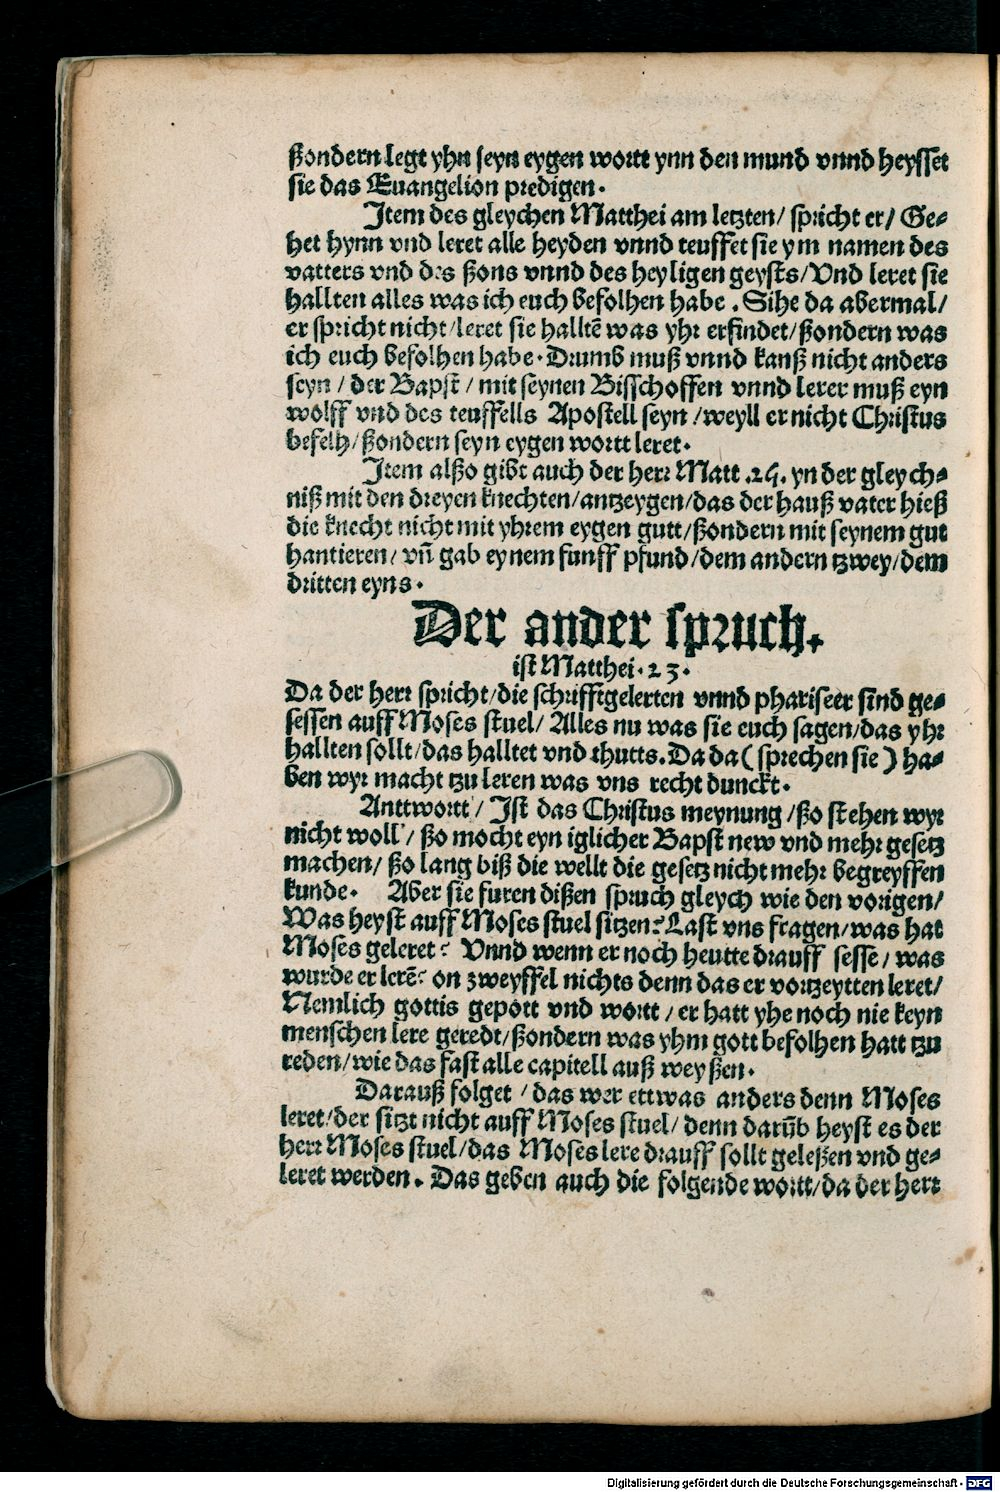 ßondern legt yhn seyn eygen wortt ynn den mund vnnd heysset
sie das Euangelion predigen.
Item des gleychen Matthei am letzten/ spricht er/ Ge-
het hynn vnd leret alle heyden vnnd teuffet sie ym namen des
vatters vnd des ßons vnnd des heyligen geysts/ Vnd leret sie
hallten alles was ich euch befolhen habe. Sihe da abermal/
er spricht nicht/ leret sie halltē was yhr erfindet/ ßondern was
ich euch befolhen habe. Drumb muß vnnd kanß nicht anders
seyn/ der Bapst/ mit seynen Bisschoffen vnnd lerer muß eyn
wolff vnd des teuffells Apostell seyn/ weyll er nicht Christus
befelh/ ßondern seyn eygen wortt leret.
Item alßo gibt auch der herr Matt .25. yn der gleych-
niß mit den dreyen knechten/ antzeygen/ das der hauß vater hieß
die knecht nicht mit yhrem eygen gutt/ ßondern mit seynem gut
hantieren/ vñ gab eynem funff pfund/ dem andern tzwey/ dem
dritten eyns.
Der ander spruch.
ist Matthei. 23.
Da der herr spricht/ die schrifftgelerten vnnd phariseer sind ge-
sessen auff Moses stuel/ Alles nu was sie euch sagen/ das yhr
hallten sollt/ das halltet vnd thutts. Da da ( sprechen sie ) ha-
ben wyr macht tzu leren was vns recht dunckt.
Anttwortt/ Ist das Christus meynung/ ßo stehen wyr
nicht woll/ ßo mocht eyn iglicher Bapst new vnd mehr gesetz
machen/ ßo lang biß die wellt die gesetz nicht mehr begreyffen
kunde. Aber sie furen dißen spruch gleych wie den vorigen/
Was heyst auff Moses stuel sitzen? Last vns fragen/ was hat
Moses geleret? Vnnd wenn er noch heutte drauff sesse/ was
wurde er lerē? on zweyffel nichts denn das er vortzeytten leret/
Nemlich gottis gepott vnd wortt/ er hatt yhe noch nie keyn
menschen lere geredt/ ßondern was yhm gott befolhen hatt tzu
reden/ wie das fast alle capitell auß weyßen.
Darauß folget/ das wer ettwas anders denn Moses
leret/ der sitzt nicht auff Moses stuel/ denn darūb heyst es der
herr Moses stuel/ das Moses lere drauff sollt geleßen vnd ge-
leret werden. Das geben auch die folgende wortt/ da der herr
Digitalisierung gefördert durch die Deutsche Forschungsgemeinschaft - DFG